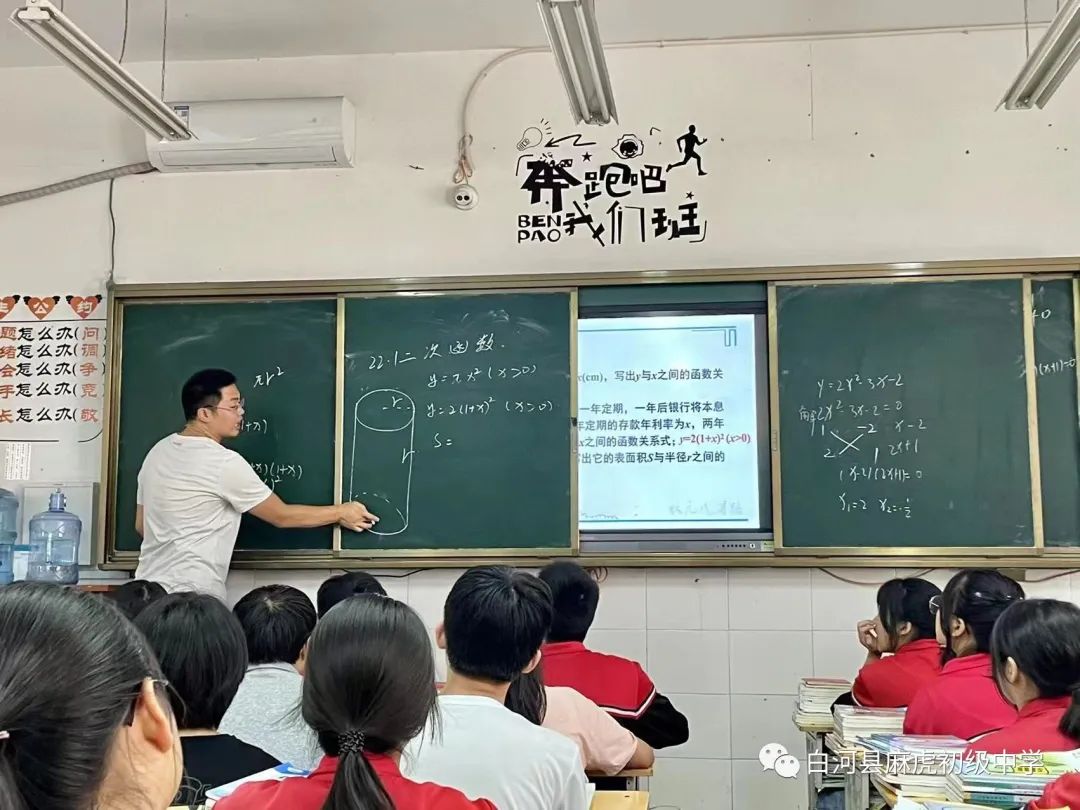 奔跑吧
BEN
PAO
我们班
公约
题怎么办(问)
绪怎么办(调)
会怎么办(争)
手怎么办(竞)
长怎么办(敬)
πr²
22.1二次函数.
y=πx²(x>0)
y=2(1+x)²(x>0)
S=
r
r
(cm)，写出y与x之间的函数关
一年定期，一年后银行将本息
定期的存款年利率为x，两年
x之间的函数关系式；y=2(1+x)²(x>0)
出它的表面积S与半径r之间的
y=2x²-3x-2
2x²-3x-2=0
1 -2 x-2
2 1 2x+1
(x-2)(2x+1)=0
x₁=2 x₂=-½
(x+1)=0
白河县麻虎初级中学